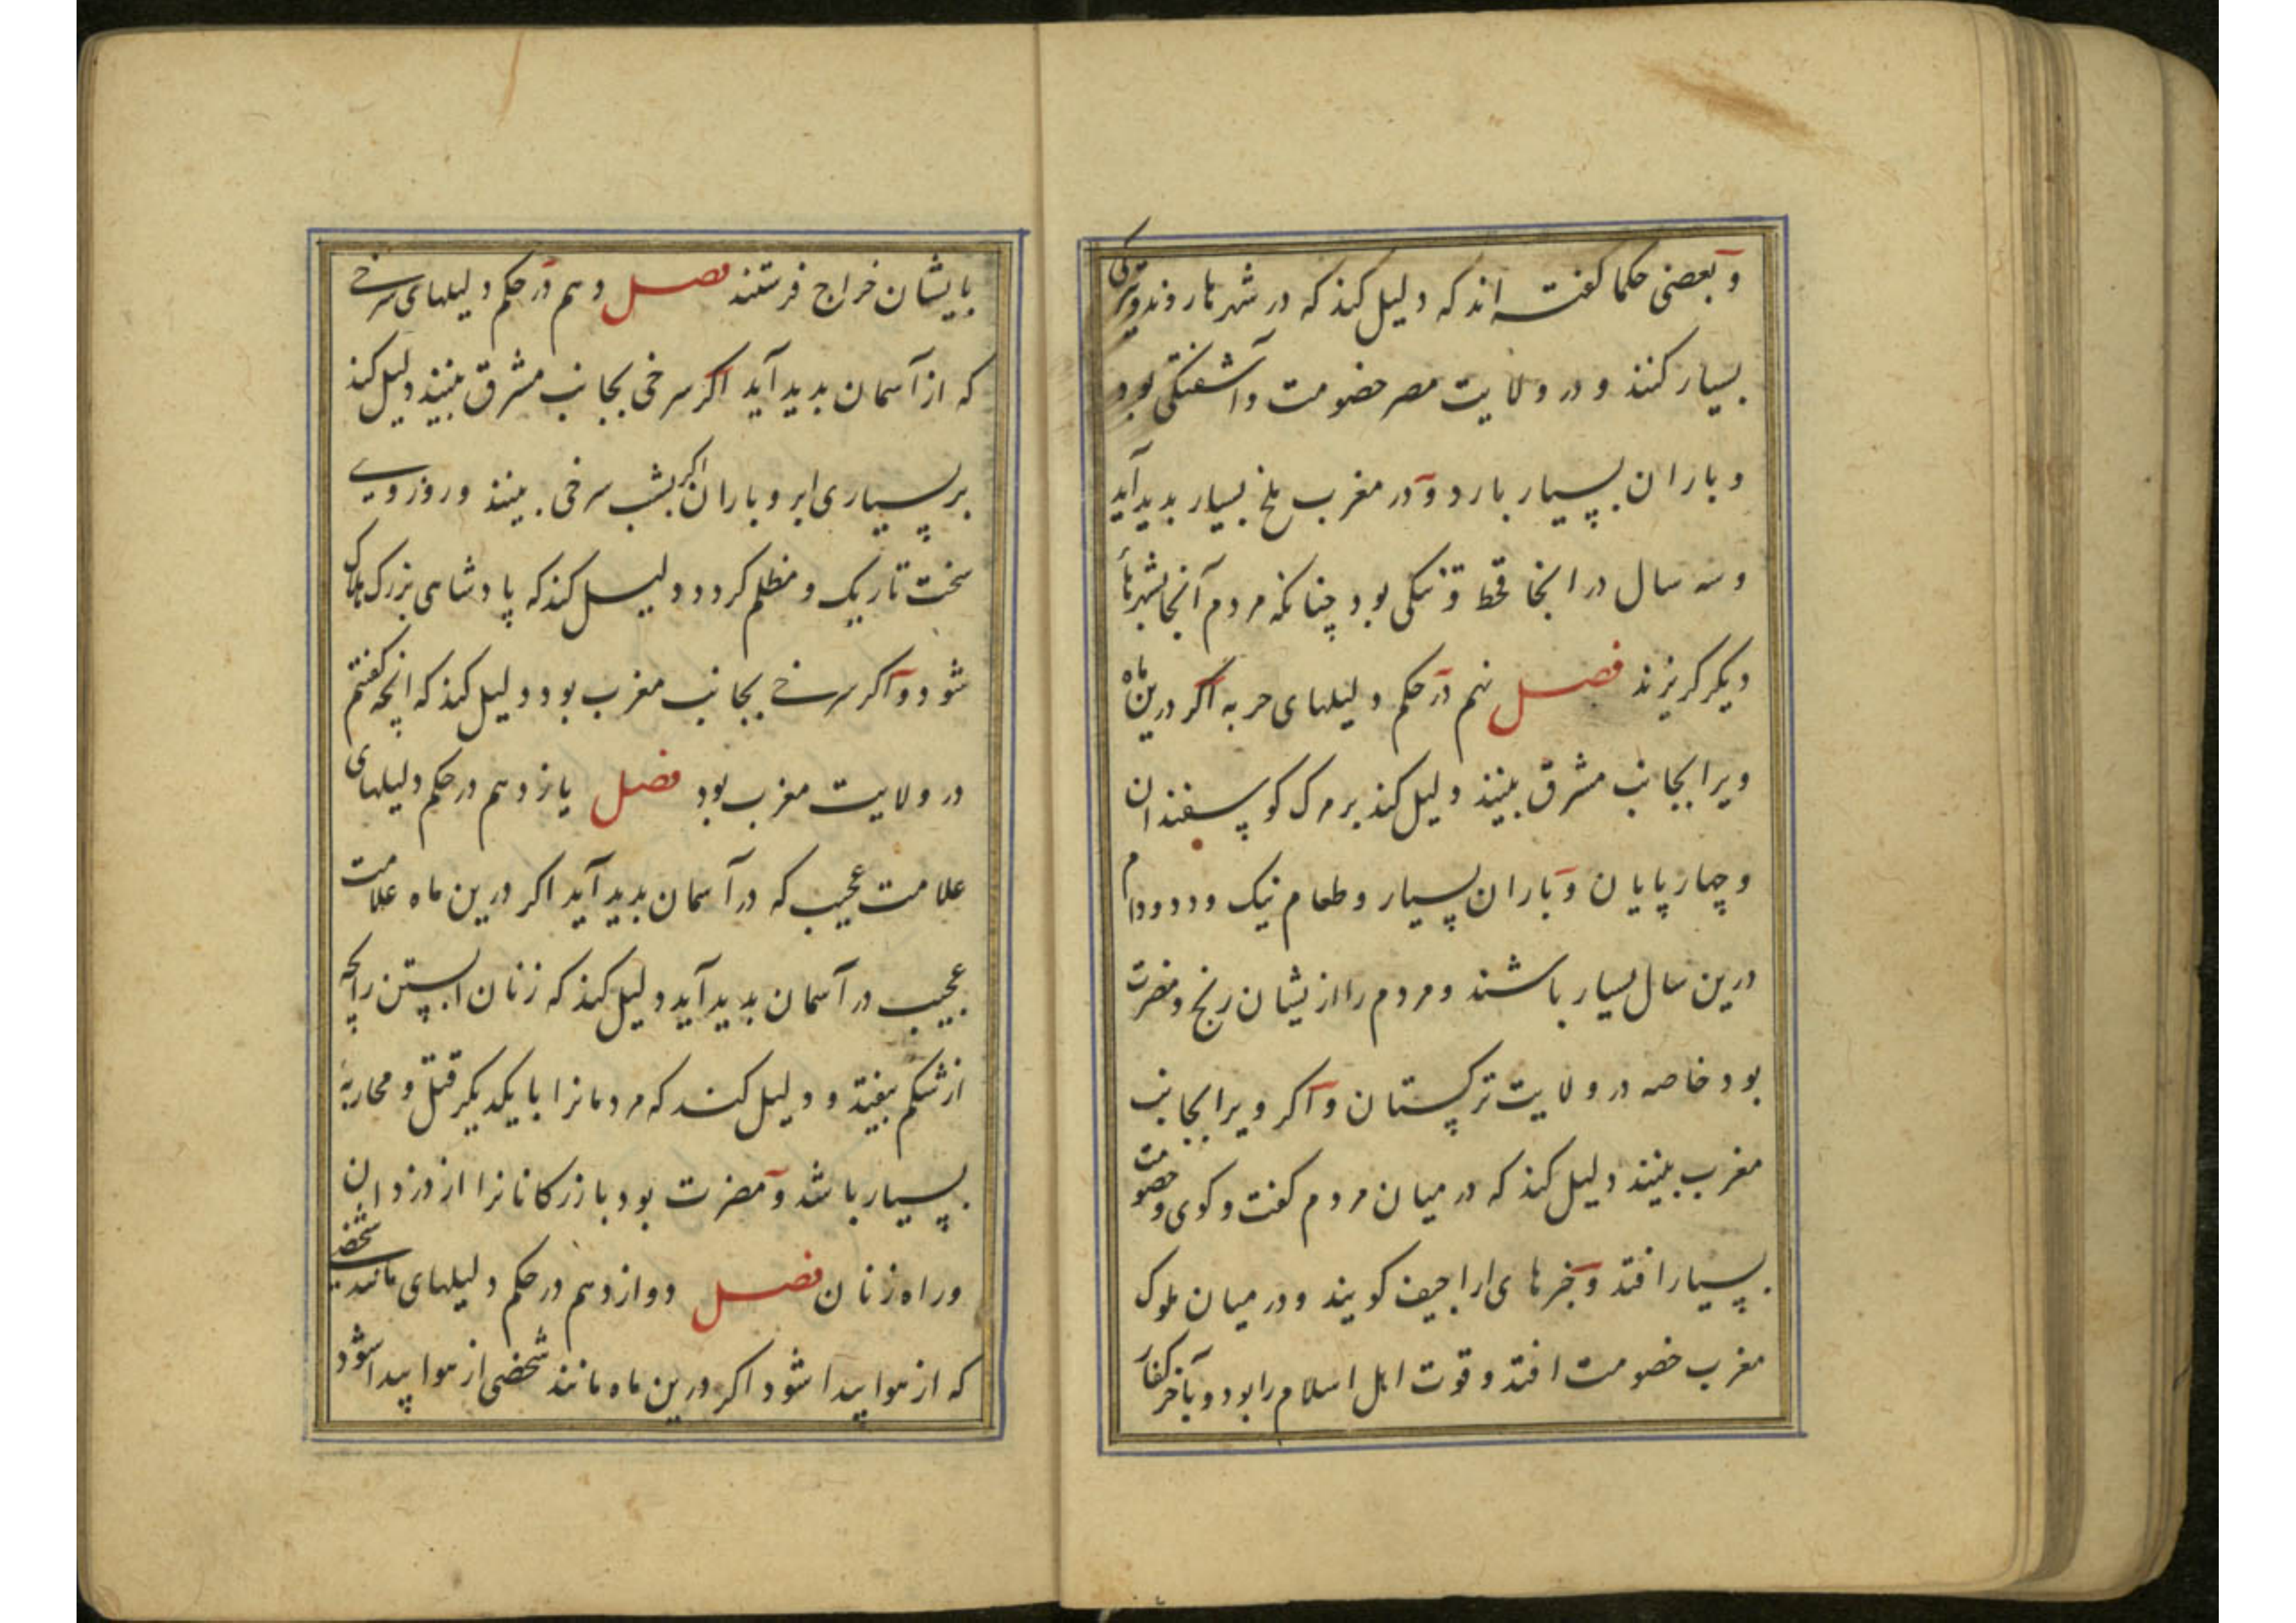 و بعضی حکما گفته اند که دلیل کند که در شهرها روند و
بسیار کنند و در ولایت مصر خصومت و آشفتگی بود
و باران بسیار بارد و در مغرب ملخ بسیار بدید آید
و سه سال در انجا قحط و تنگی بود چنانکه مردم آنجا بشهرهاء
دیگر گریزند فصل نهم در حکم دلیلهای حربه اگر درین ماه
ویرا بجانب مشرق بینند دلیل کند بر مرک کوسفندان
و چهارپایان و باران بسیار و طعام نیک و دد و دام
درین سال بسیار باشند و مردم را ازیشان رنج و مضرت
بود خاصه در ولایت ترکستان و اکر ویرا بجانب
مغرب بینند دلیل کند که در میان مردم کفت و کوی و خصومت
بسیار افتد و خبرهای اراجیف کویند و در میان ملوک
مغرب خصومت افتد و قوت اهل اسلام را بود و بآخر کفار
بایشان خراج فرستند فصل دهم در حکم دلیلهای سرخی
که از آسمان بدید آید اکر سرخی بجانب مشرق بینند دلیل کند
بر بسیاری ابر و باران اکر بشب سرخی بینند و روز وی
سخت تاریک و مظلم کردد دلیل کند که پادشاهی بزرک هلاک
شود و اکر سرخی بجانب مغرب بود دلیل کند که انچه کفتم
در ولایت مغرب بود فصل یازدهم در حکم دلیلهای
علامت عجیب که در آسمان بدید آید اکر درین ماه علامت
عجیب در آسمان بدید آید دلیل کند که زنان ابستن را بچه
از شکم بیفتد و دلیل کند که مردمانرا با یکدیکر قتل و محاربه
بسیار باشد و مضرت بود بازرکانانرا از دزدان
و راه زنان فصل دوازدهم در حکم دلیلهای مانند شخصی
که از هوا پیدا شود اکر درین ماه مانند شخصی از هوا پیدا شود